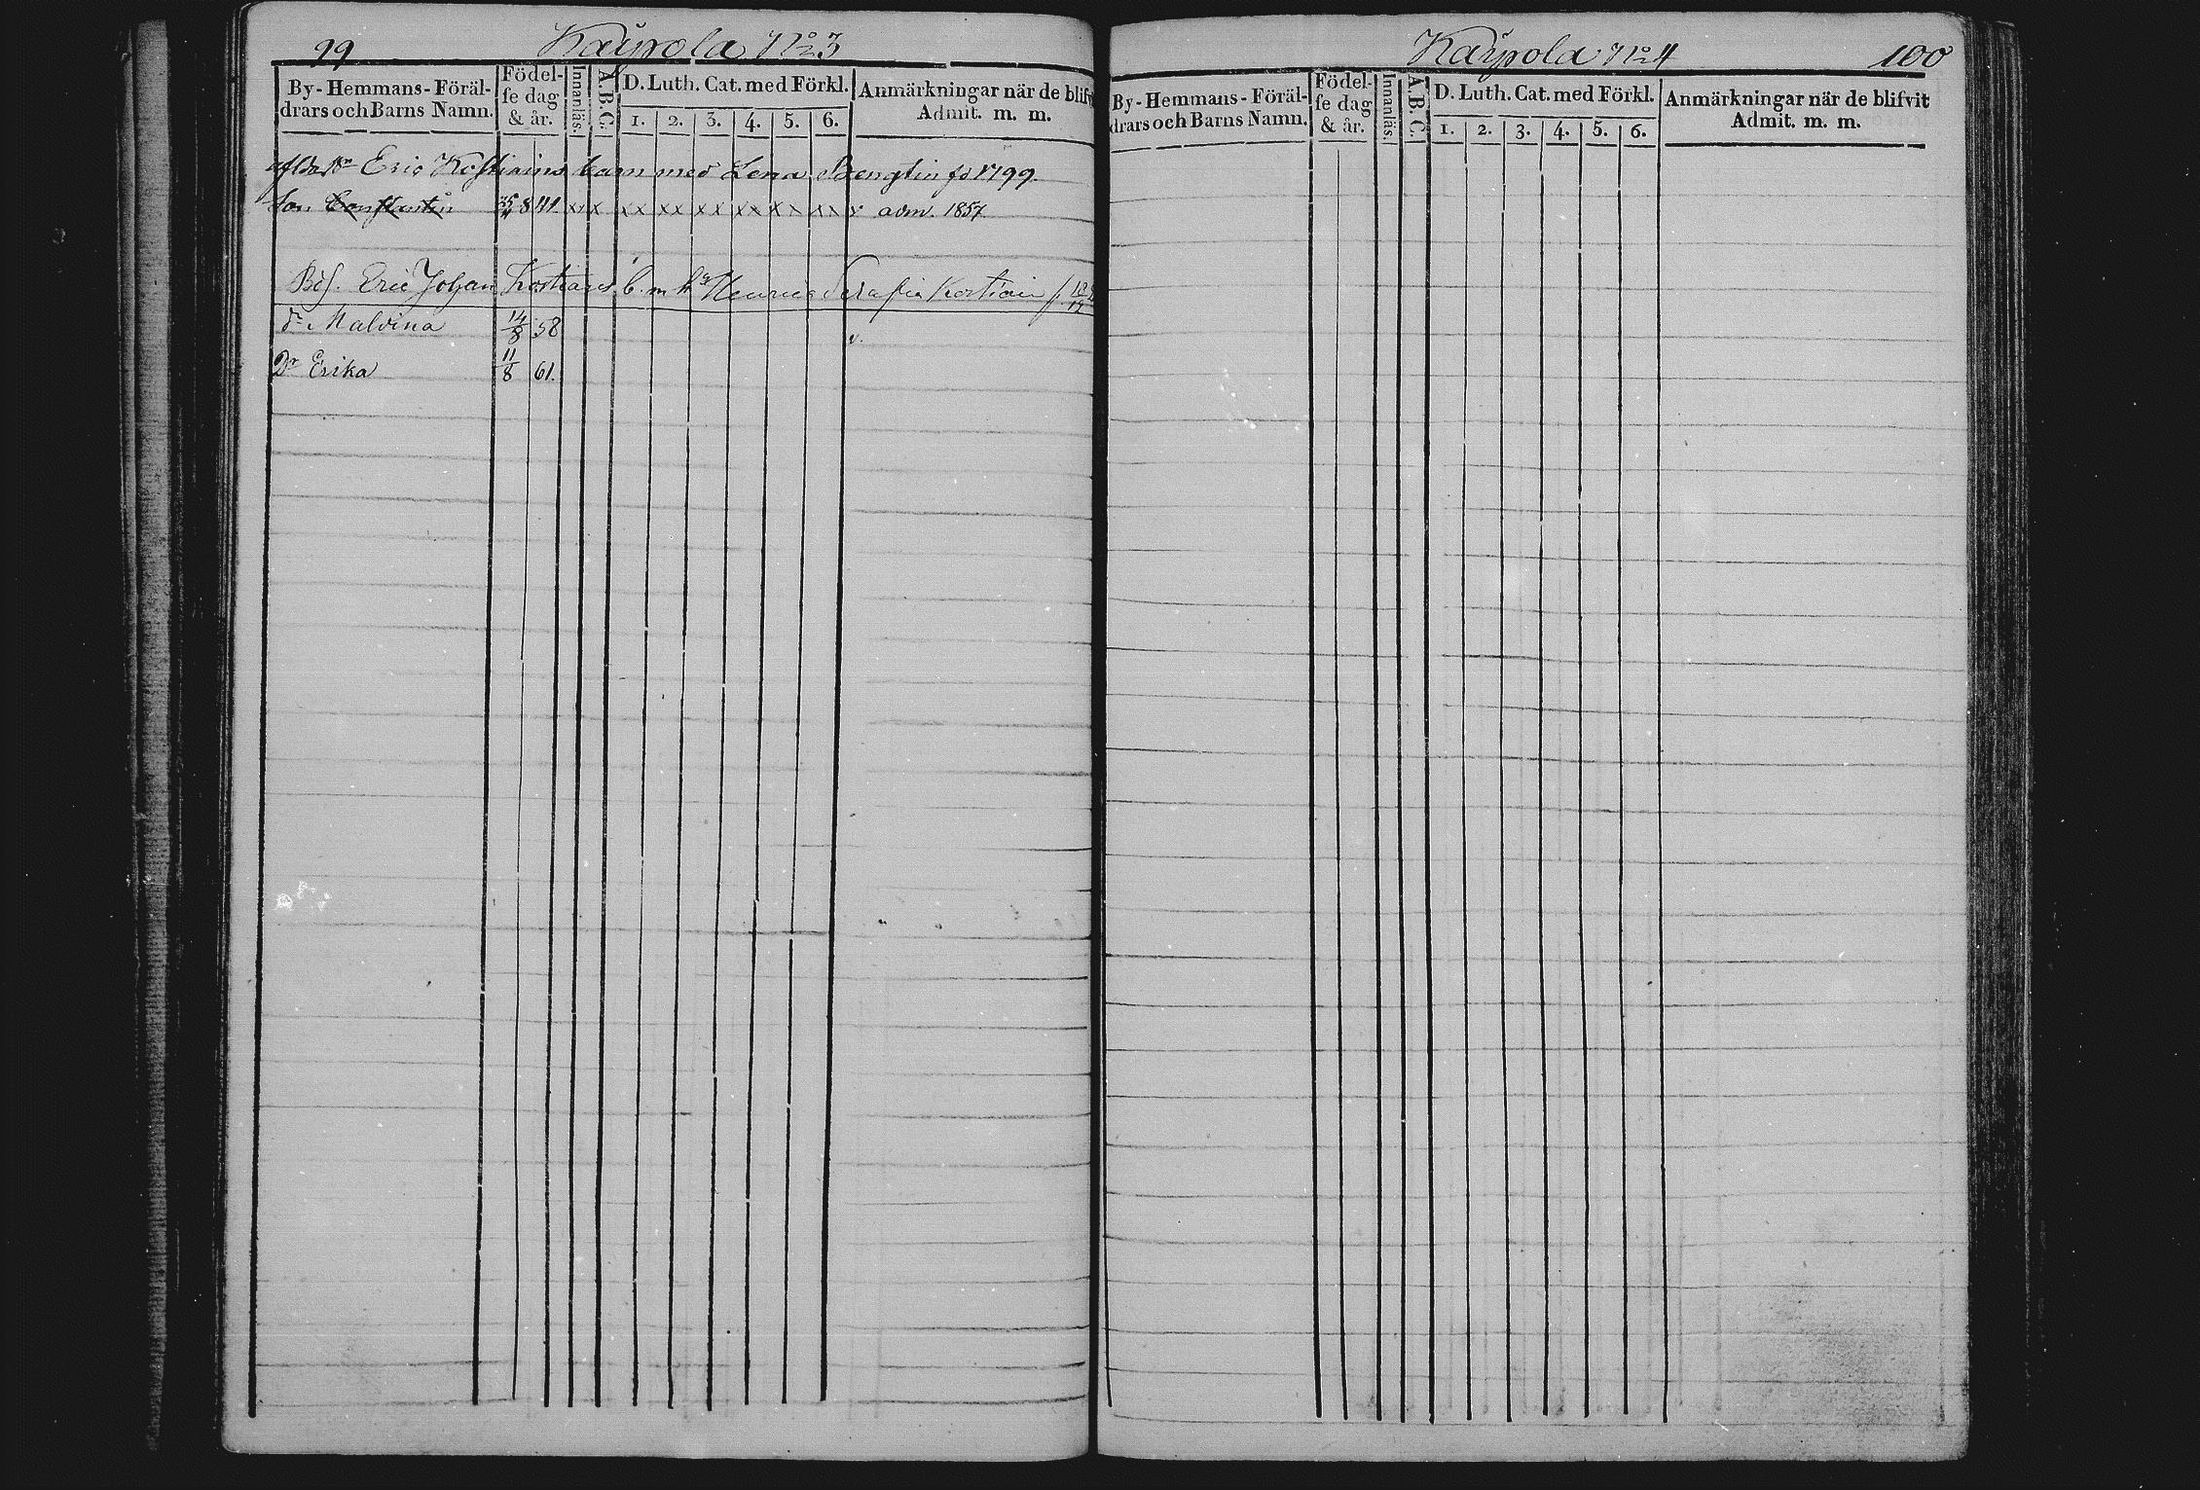 99 Kaupola No 3
By-Hemmans-Föräl-
drars och Barns Namn.
Födel-
se dag
& år.
Innanläs.
A.B.C.
D. Luth. Cat. med Förkl.
1. 2. 3. 4. 5. 6.
Anmärkningar när de blifv
Admit. m. m.
Eric Kostiains barn med Lena Bengtin fd 1799.
Son Constantin 25/4 841. xx x xx xx xx xx x xx v adm. 1857
Eric Johan Kostiains b. m. h. Serafia Kostiain f.
dr Malvina 14/8 58 v.
Dr Erika 11/8 61.
Kaupola No 4 100
By-Hemmans-Föräl-
drars och Barns Namn.
Födel-
se dag
& år.
Innanläs.
A.B.C.
D. Luth. Cat. med Förkl.
1. 2. 3. 4. 5. 6.
Anmärkningar när de blifvit
Admit. m. m.